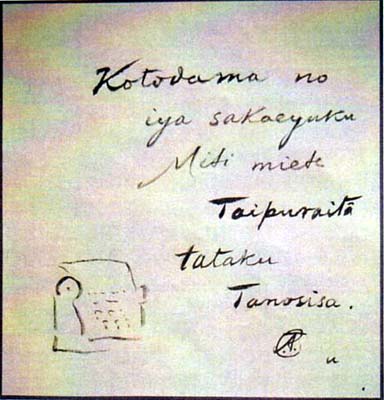 Kotodama no
iya sakaeyuku
Miti miete
Taipuraitā
tataku
Tanosisa.